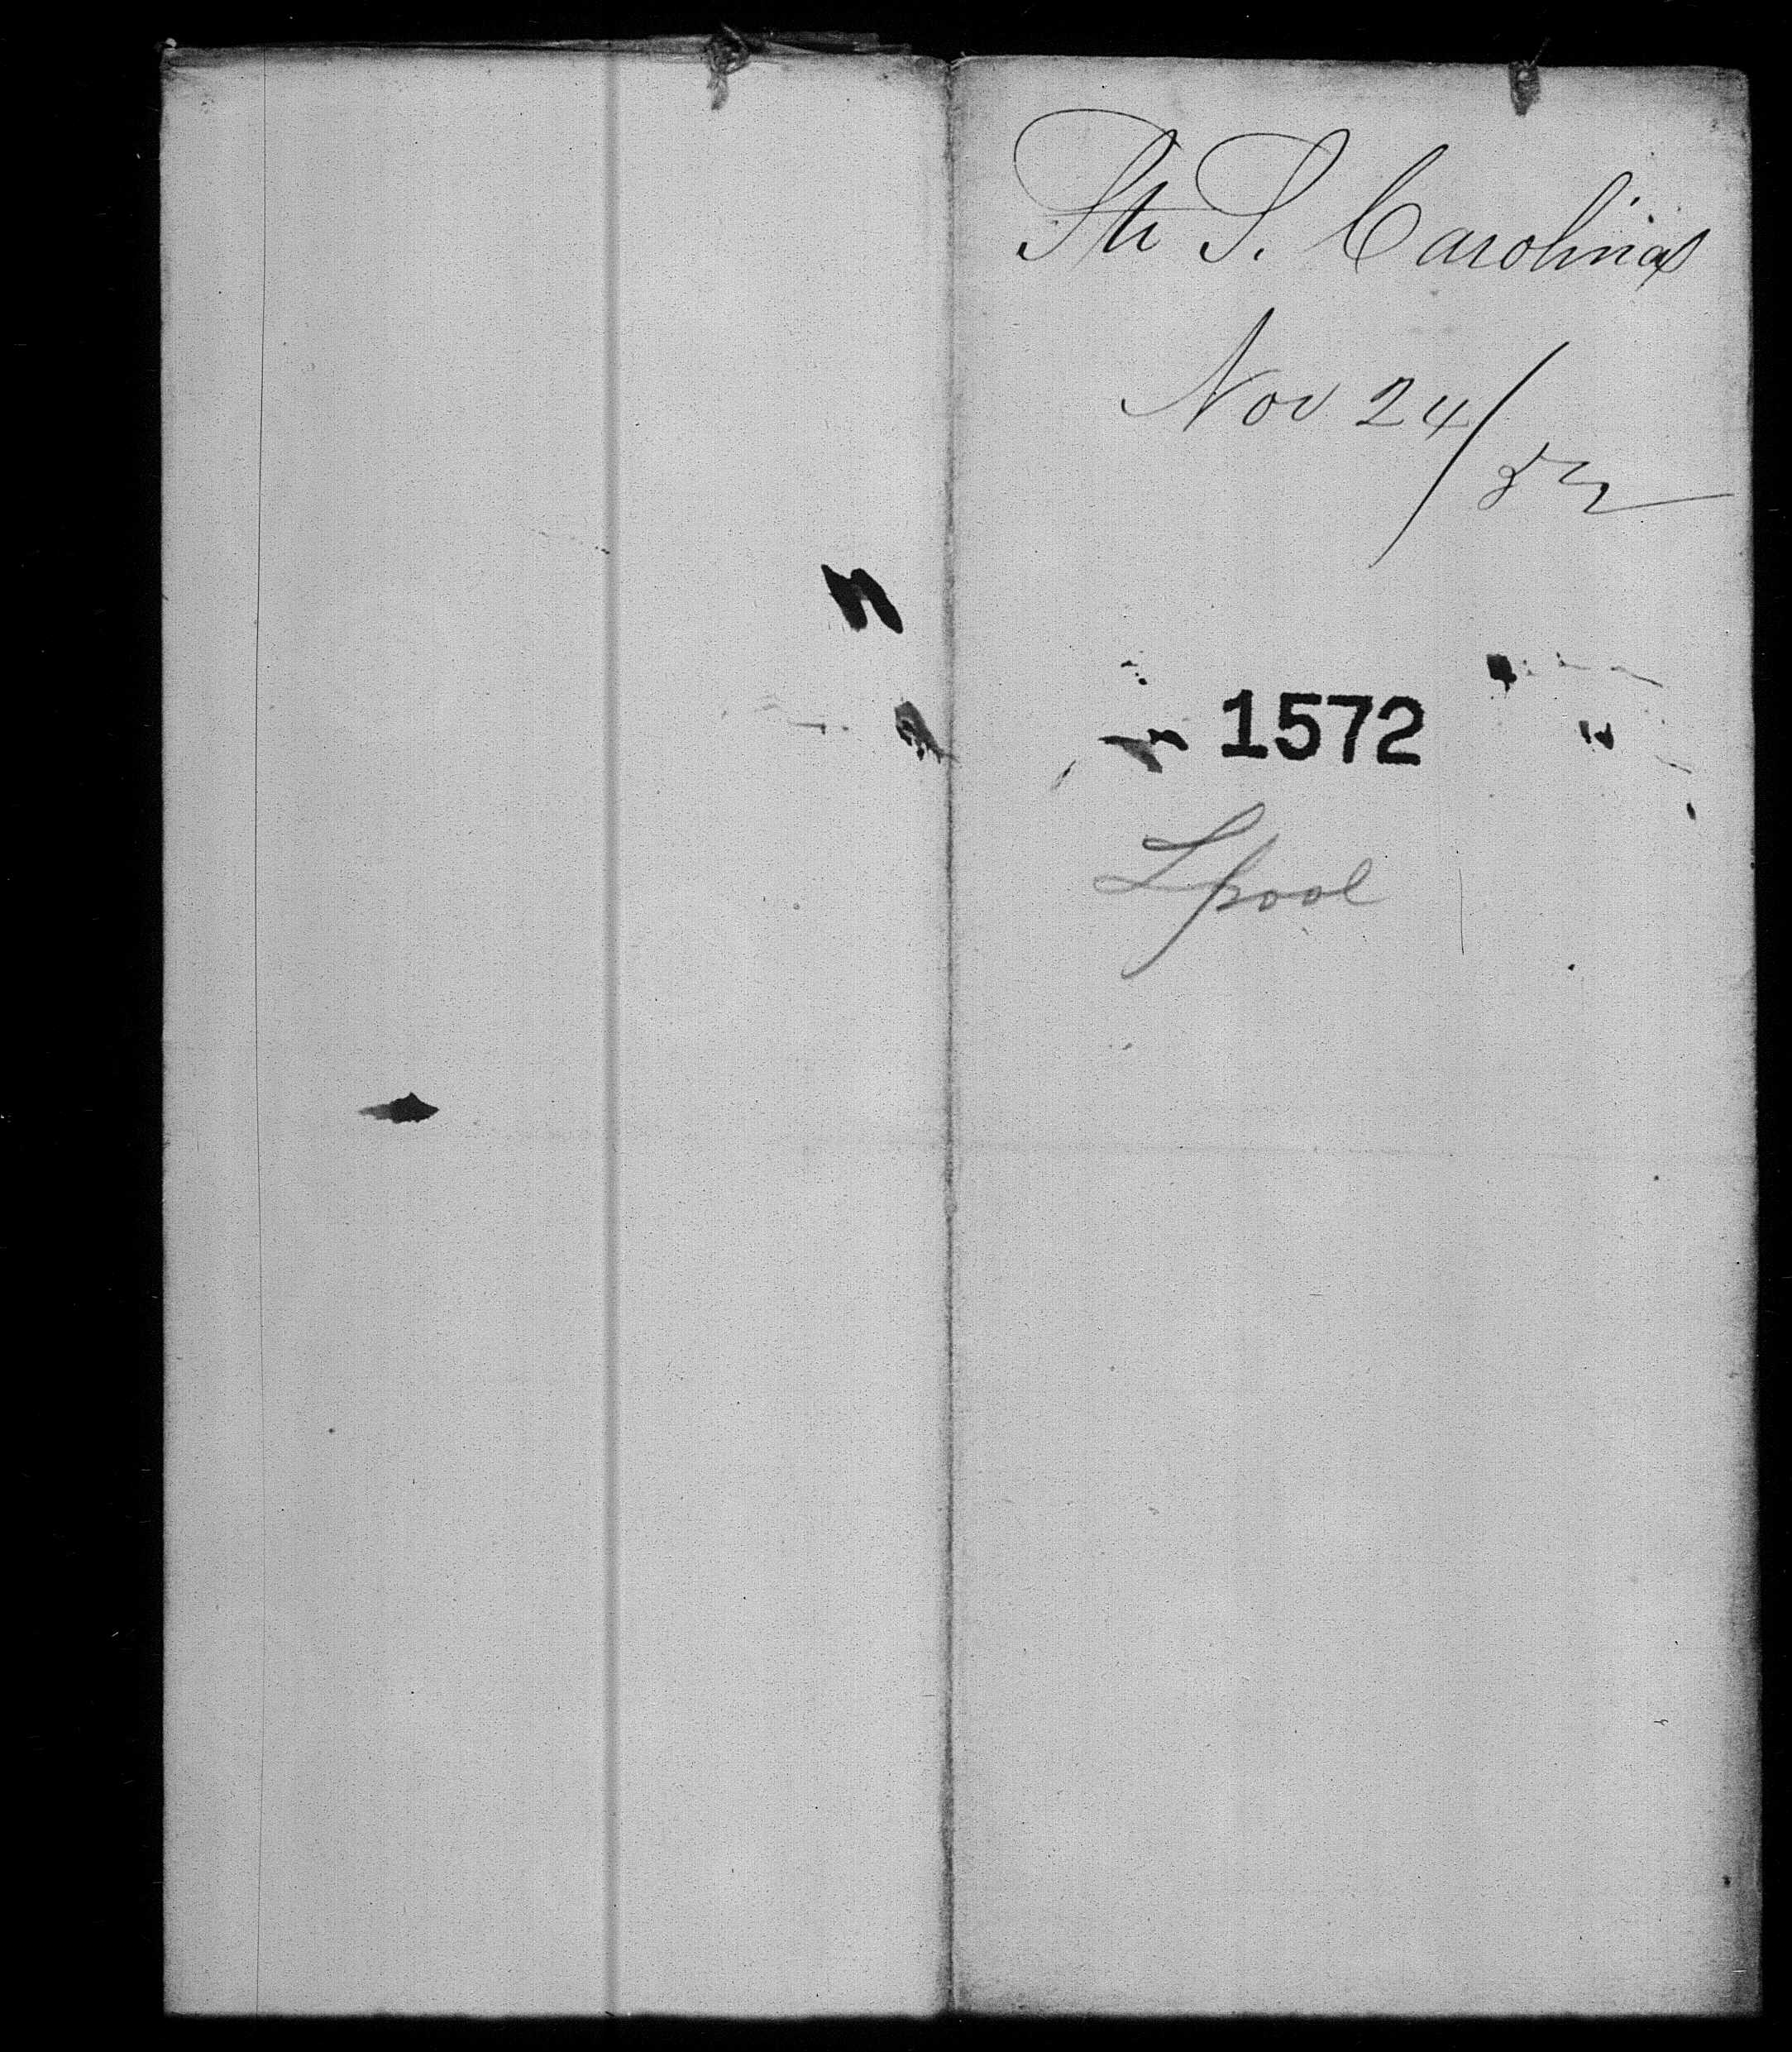 Str S. Carolina
Nov 24/52
1572
Lpool